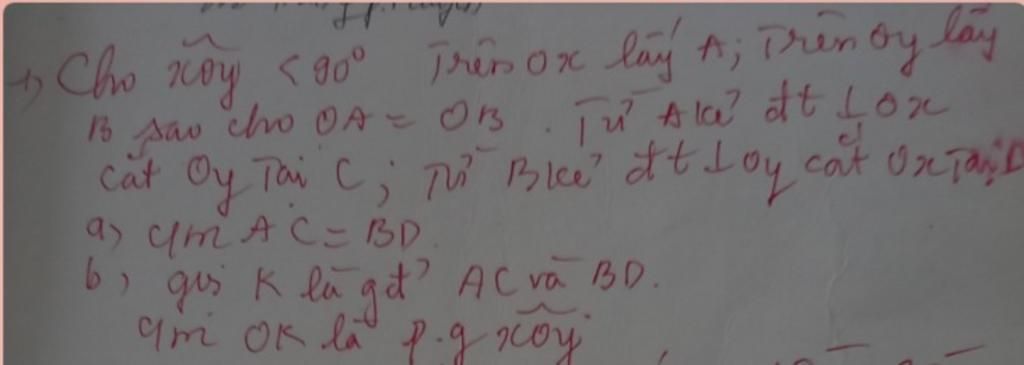 Cho xOy < 90° Trên Ox lấy A; Trên Oy lấy
B sao cho OA = OB. Từ A kẻ đt ⊥ Ox
cắt Oy tại C; Từ B kẻ đt ⊥ Oy cắt Ox tại D
a) CM AC = BD.
b) gọi K là gđ AC và BD.
CM OK là p.g xOy